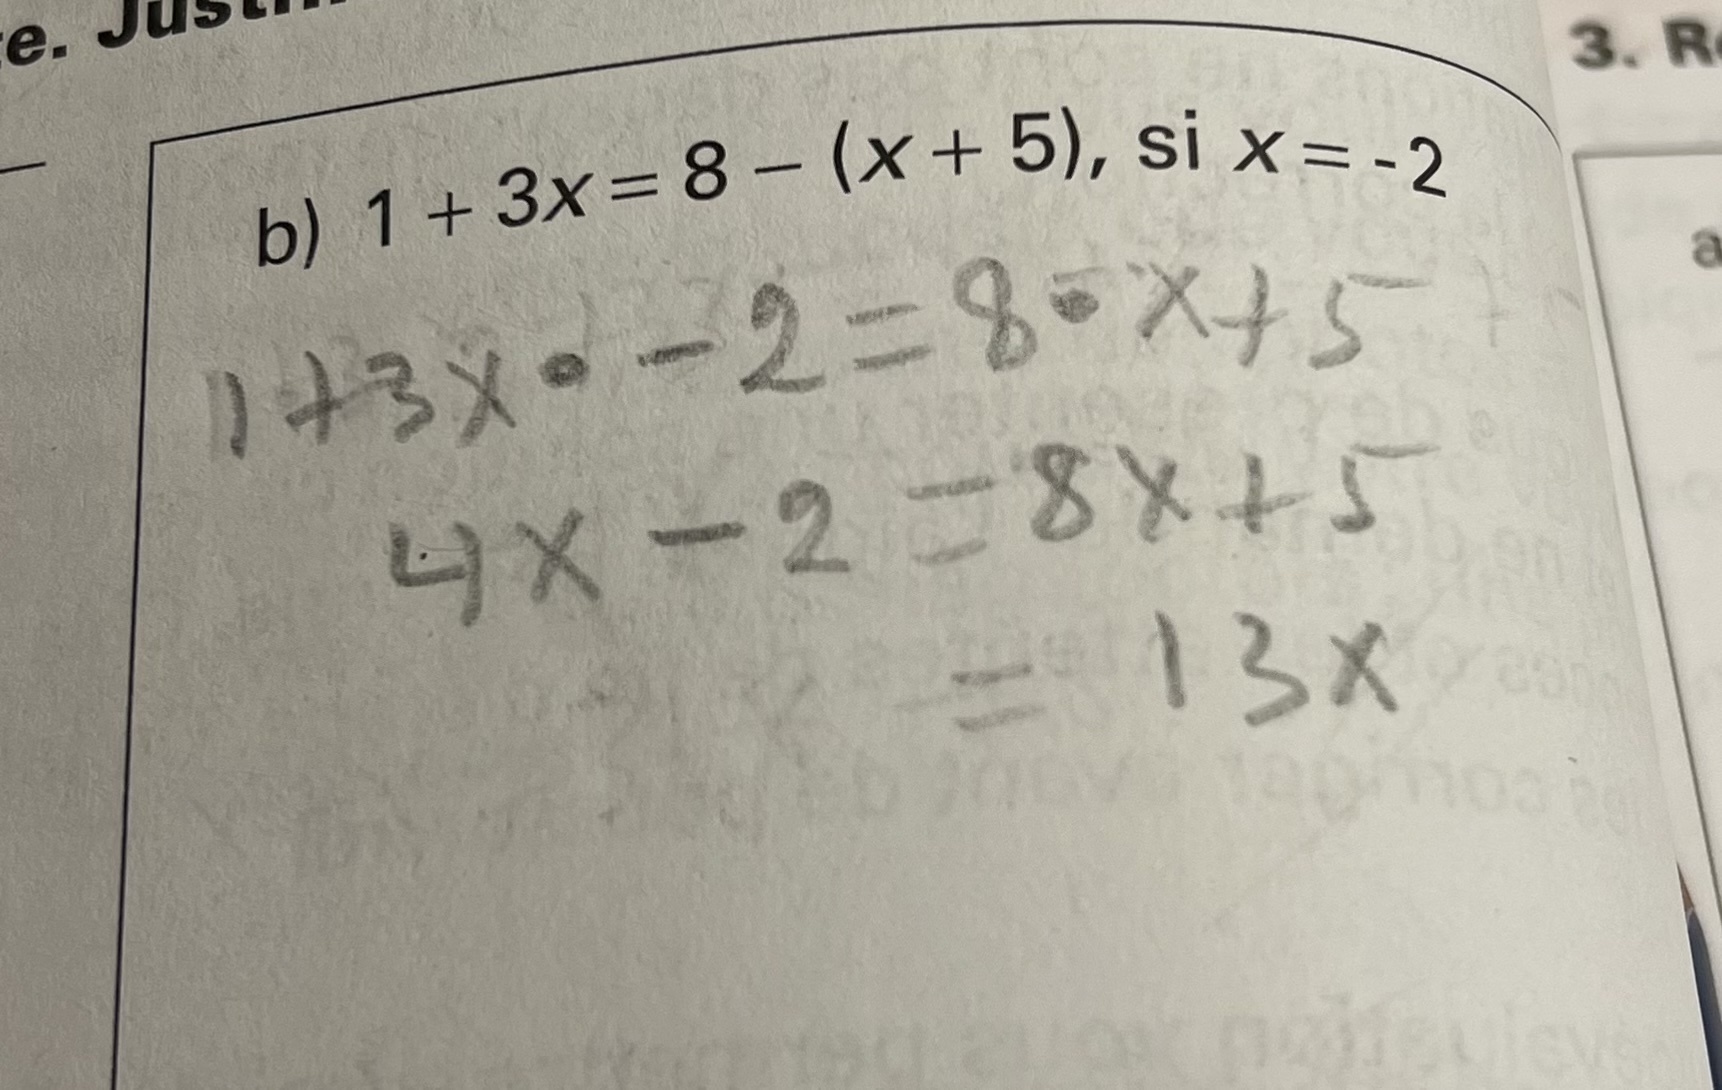 3.
b) 1 + 3x = 8 – (x + 5), si x = -2
1+3x • -2=8•x+5
4x - 2 = 8x+5
= 13x